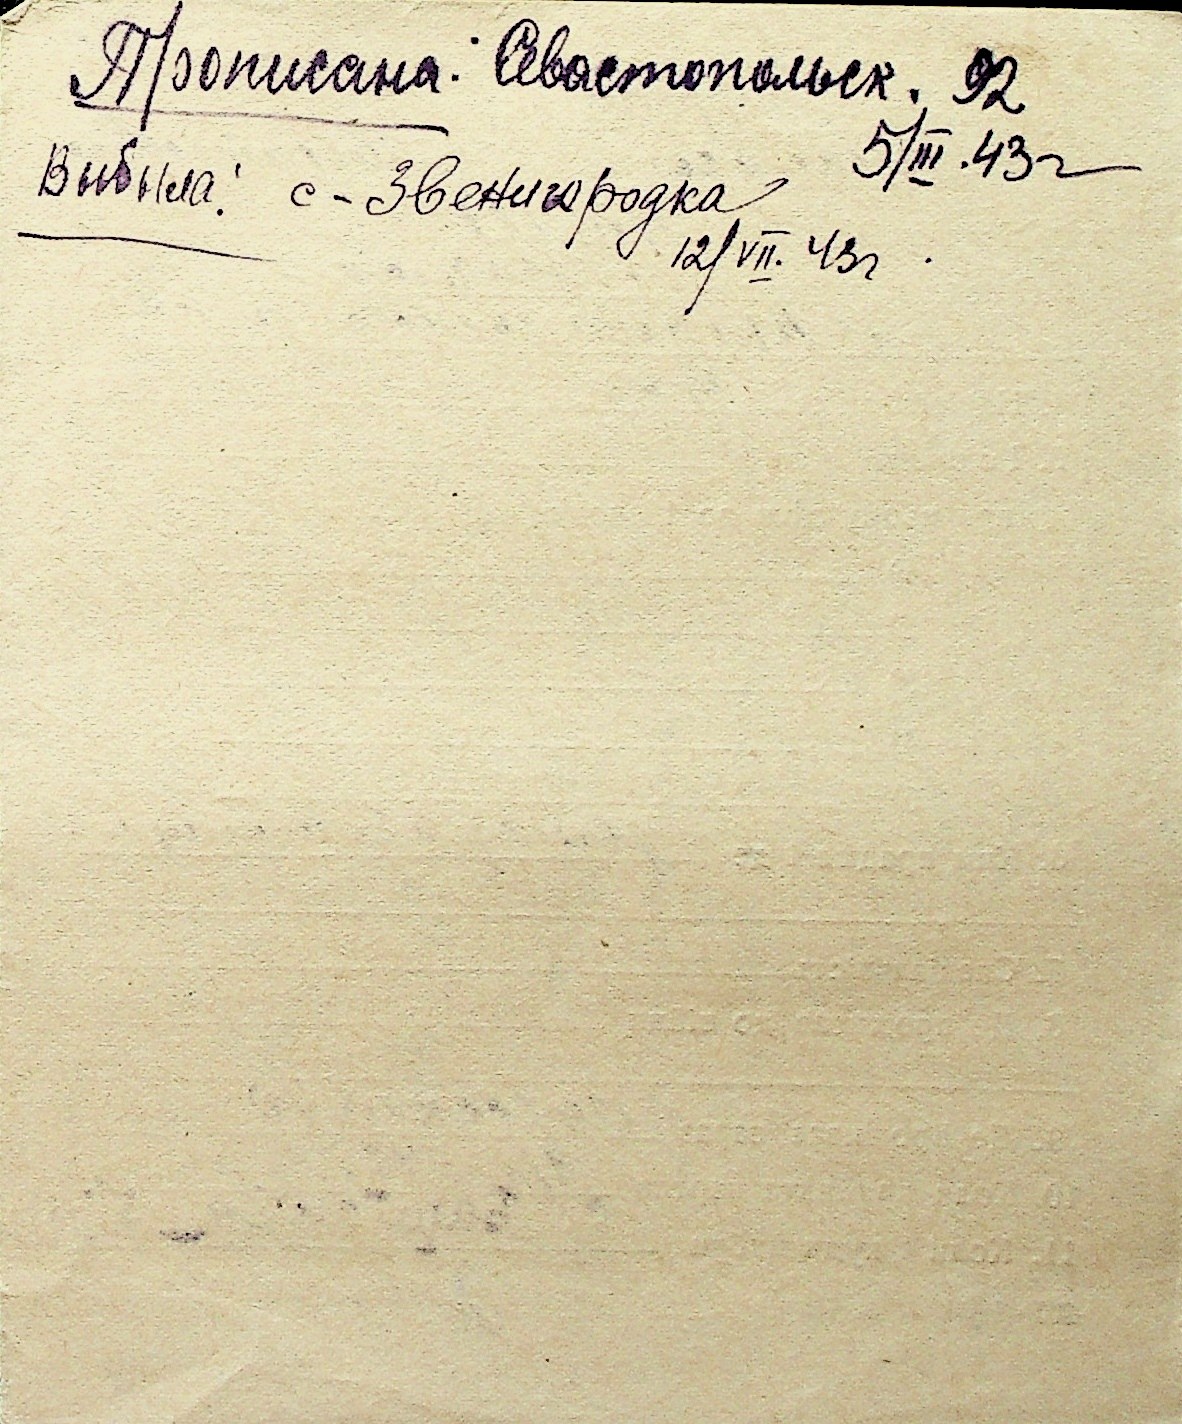 Прописана: Севастопольск. 92
5/III.43г
Выбыла: с-Звенигородка
12/VII. 43г.